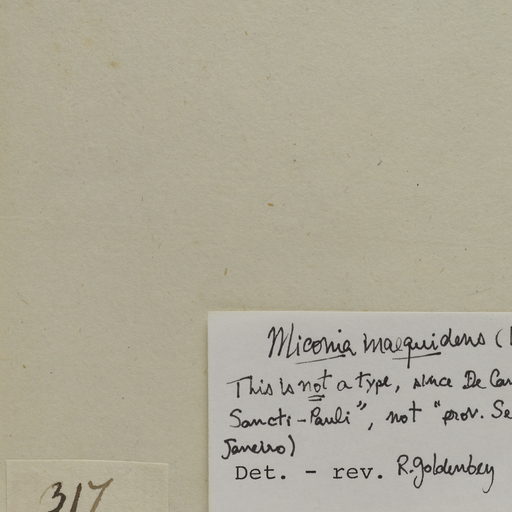 Miconia inaequidens (
This is not a type, since De Can
Sancti-Pauli", not "prov. Se
Janeiro)
Det. - rev. R. Goldenberg
317